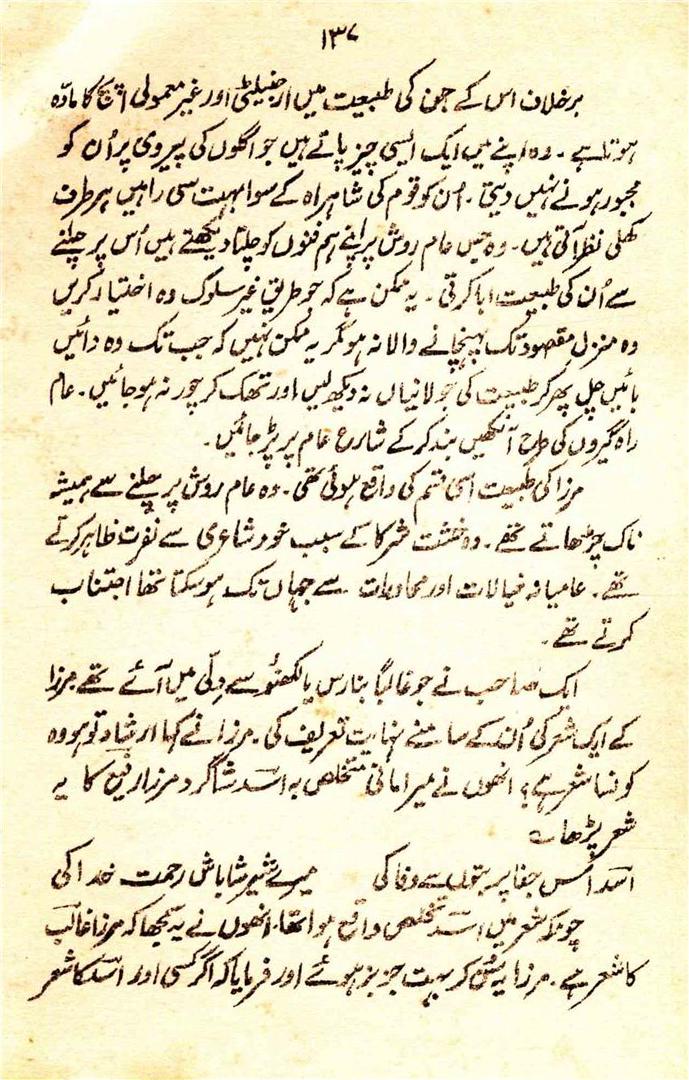 ۱۳۷
برخلاف اس کے جن کی طبیعت میں ارجنیلیٹی اور غیر معمولی اپچ کا مادّہ
ہوتا ہے۔ وہ اپنے میں ایک ایسی چیز پاتے ہیں جو اگلوں کی پیروی پر اُن کو
مجبور ہونے نہیں دیتی۔ اُن کو قوم کی شاہراہ کے سوا بہت سی راہیں ہر طرف
کھلی نظر آتی ہیں۔ وہ جس عام روش پر اپنے ہم فنوں کو چلتا دیکھتے ہیں اُس پر چلنے
سے اُن کی طبیعت ابا کرتی۔ یہ ممکن ہے کہ جو طریق غیر سلوک وہ اختیار کریں
وہ منزل مقصود تک پہنچانے والا نہ ہو مگر یہ ممکن نہیں کہ جب تک وہ دائیں
بائیں چل پھر کر طبیعت کی جولانیاں نہ دیکھ لیں اور تھک کر چور نہ ہو جائیں۔ عام
راہ گیروں کی طرح آنکھیں بند کر کے شارع عام پر پڑ جائیں۔
مرزا کی طبیعت اسی قسم کی واقع ہوئی تھی۔ وہ عام روش پر چلنے سے ہمیشہ
ناک چڑھاتے تھے۔ وہ خست شرکا کے سبب خود شاعری سے نفرت ظاہر کرتے
تھے۔ عامیانہ خیالات اور محاورات سے جہاں تک ہو سکتا تھا اجتناب
کرتے تھے۔
ایک صاحب نے جو غالباً بنارس یا لکھنؤ سے دِلّی میں آئے تھے مرزا
کے ایک شعر کی اُن کے سامنے نہایت تعریف کی۔ مرزا نے کہا ارشاد تو ہو وہ
کونسا شعر ہے؟ انھوں نے میر امانی متخلص بہ اسدؔ شاگرد مرزا رفیع کا یہ
شعر پڑھا؎
اسدؔ اس جفا پر بتوں سے وفا کی میرے شیر شاباش رحمت خدا کی
چونکہ شعر میں اسدؔ تخلص واقع ہوا تھا، انھوں نے یہ سمجھا کہ مرزا غالبؔ
کا شعر ہے۔ مرزا یہ سُن کر بہت جزبز ہوئے اور فرمایا کہ اگر کسی اور اسدؔ کا شعر